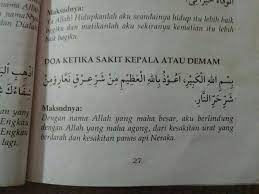 Maksudnya:
Ya Allah! Hidupkanlah aku seandainya hidup itu lebih baik
bagiku dan matikanlah aku seandainya kematian itu lebih
baik bagiku.
DOA KETIKA SAKIT KEPALA ATAU DEMAM
بِسْمِ اللهِ الْكَبِيْرِ، أَعُوْذُ بِاللهِ الْعَظِيْمِ مِنْ شَرِّ عِرْقٍ نَعَّارٍ وَمِنْ
شَرِّ حَرِّ النَّارِ.
Maksudnya:
Dengan nama Allah yang maha besar, aku berlindung
dengan Allah yang maha agung, dari kesakitan urat yang
berdarah dan kesakitan panas api Neraka.
27